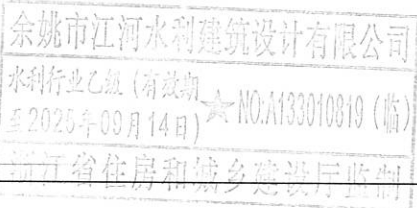 余姚市江河水利建筑设计有限公司
水利行业乙级(有效期
至2025年09月14日)
☆ NO.A133010819(临)
浙江省住房和城乡建设厅监制